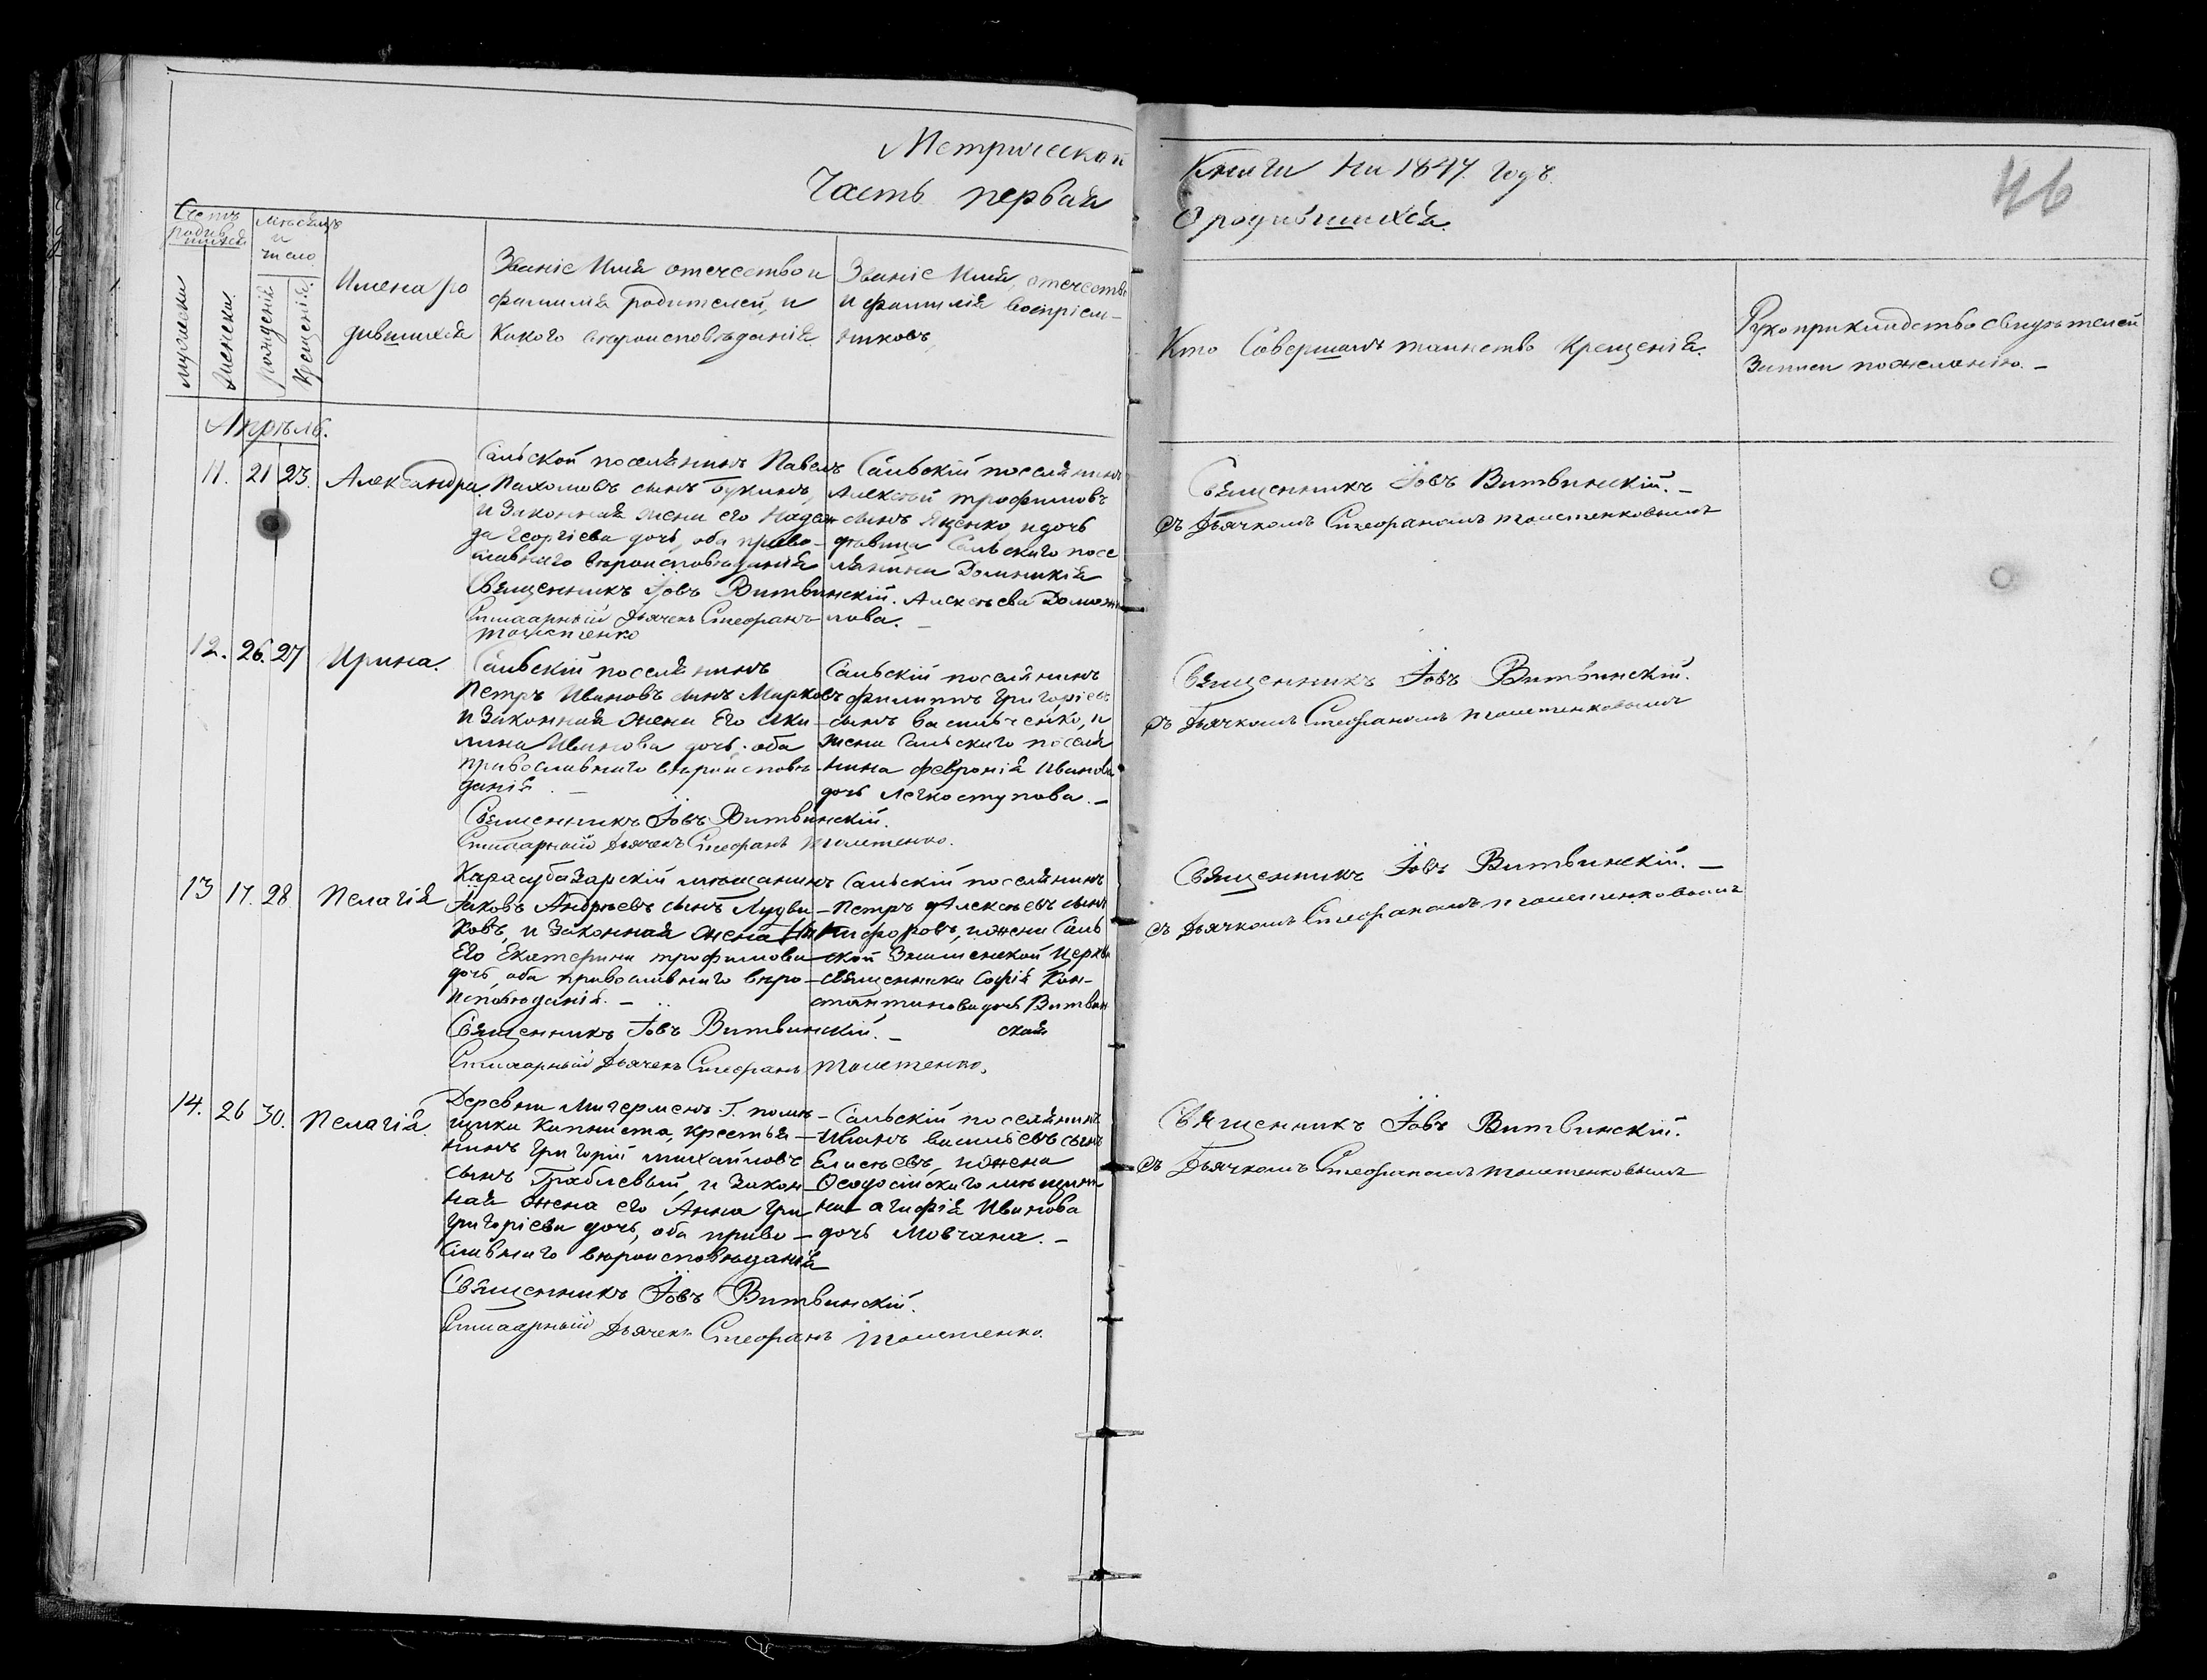 Метрической
Часть первая
Книги на 1847. годъ.
О родившихся.
46
Счетъ
родив
шихся
мѣсяцъ
и
число
мужеска
женска.
рожденія
Крещенія.
Имена ро
дившихся
Званіе Имя отечество и
фамилія родителей, и
Какого вѣроисповѣданія
Званіе Имя, отечество
и фамилія воспріем-
никовъ,
Кто Совершалъ таинство крещенія.
Рукоприкладство свидѣтелей
записи по желанію. -
Апрѣль.
11. 21 23. Александра
Сальской поселянинъ Павелъ
Пахомовъ сынъ Букинъ,
и законная жена его Надеж
да Георгіева дочь, оба право-
славнаго вѣроисповѣданія
Священникъ Іовъ Витвинскій.
Стихарный Дьячекъ Стефанъ
Сальскій поселянинъ
Алексѣй трофимовъ
сынъ Яценко, и дочь
дѣвица Сальскаго посе
лянина Домникія
Алексѣева Долож
лова. -
Священникъ Іовъ Витвинскій. -
съ Дьячкомъ Стефаномъ
12. 26. 27 Ирина.
Сальскій поселянинъ
Петръ Ивановъ сынъ Марковъ
и Законная жена Его Аки-
лина Иванова дочь. оба
православнаго вѣроисповѣ-
данія. -
Священникъ Іовъ Витвинскій.
Стихарный Дьячекъ Стефанъ
Сальскій поселянинъ
филиппъ Григорьевъ
сынъ васильченко, и
жена Сальскаго поселя
нина Февронія Иванова
дочь Легкоступова. -
Священникъ Іовъ Витвинскій.
съ Дьячкомъ Стефаномъ
13 17. 28. Пелагія
Карасубазарскій мѣщанинъ
Іяковъ Андреевъ сынъ Лудви-
ковъ, и Законная жена
Его Екатерина трофимова
дочь, оба православнаго вѣро-
исповѣданія. -
Священникъ Іовъ Витвинскій. -
Стихарный Дьячекъ Стефанъ
Сальскій поселянинъ
Петръ Алексѣевъ сынъ
Никифоровъ, и жена Саль
ской церкви
священника Софія Кон-
стантинова дочь Витвин
ская
Священникъ Іовъ Витвинскій. -
съ Дьячкомъ Стефаномъ
14. 26 30. Пелагія.
Деревни Г. помѣ-
щика Капниста, крестья-
нинъ Григорій михайловъ
сынъ Граблевый, и Закон-
ная жена его Анна Гри
Григоріева дочь, оба право-
славнаго вѣроисповѣданія
Священникъ Іовъ Витвинскій.
Стихарный Дьячекъ Стефанъ
Сальскій поселянинъ
Иванъ васильевъ сынъ
Елисѣевъ, и жена
Ѳеодосійскаго мѣщани-
на агафія Иванова
дочь Мовчана. -
Священникъ Іовъ Витвинскій.
съ Дьячкомъ Стефаномъ